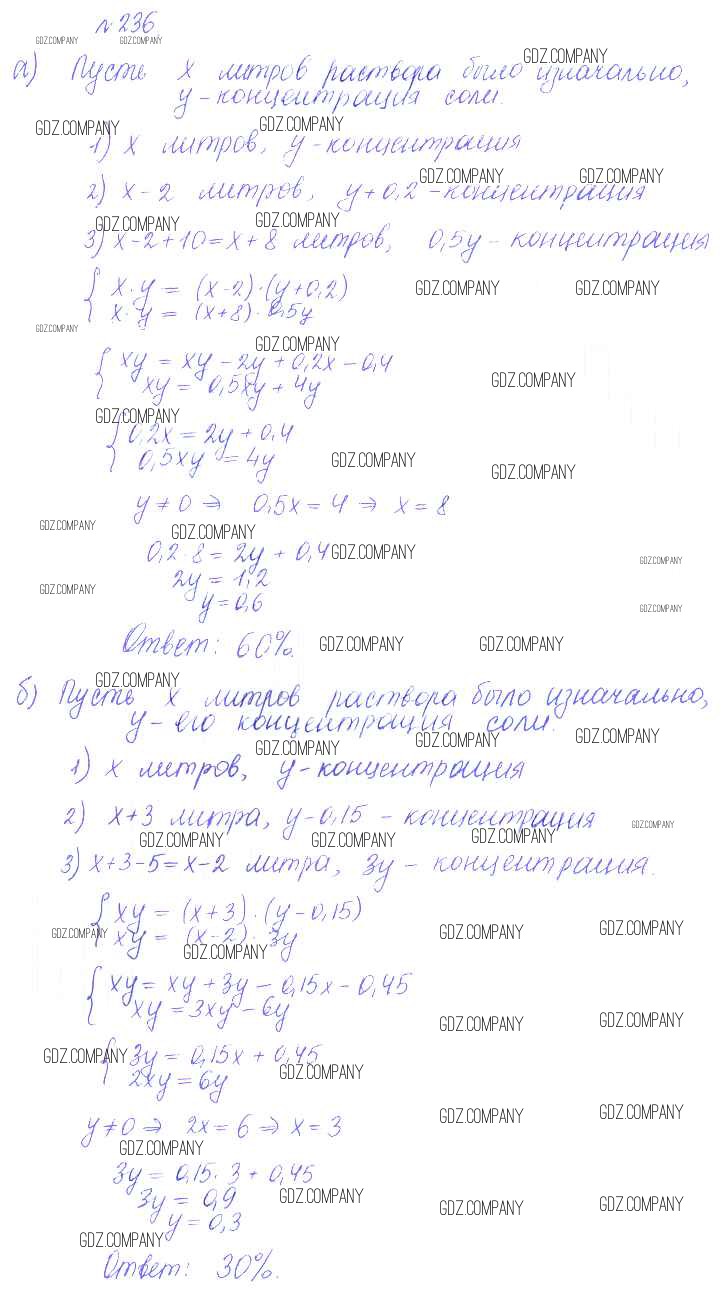 №236
GDZ.COMPANY GDZ.COMPANY
GDZ.COMPANY
а) Пусть x литров раствора было изначально,
y - концентрация соли.
GDZ.COMPANY GDZ.COMPANY
1) x литров, y - концентрация
GDZ.COMPANY GDZ.COMPANY
2) x - 2 литров, y + 0,2 - концентрация
GDZ.COMPANY GDZ.COMPANY
3) x - 2 + 10 = x + 8 литров, 0,5y - концентрация
{ x · y = (x-2) · (y+0,2) GDZ.COMPANY GDZ.COMPANY
x · y = (x+8) · 0,5y
GDZ.COMPANY
GDZ.COMPANY
{ xy = xy - 2y + 0,2x - 0,4
xy = 0,5xy + 4y GDZ.COMPANY
GDZ.COMPANY
{ 0,2x = 2y + 0,4
0,5xy = 4y GDZ.COMPANY
GDZ.COMPANY
y ≠ 0 ⇒ 0,5x = 4 ⇒ x = 8
GDZ.COMPANY GDZ.COMPANY
0,2 · 8 = 2y + 0,4 GDZ.COMPANY
GDZ.COMPANY
2y = 1,2
GDZ.COMPANY
y = 0,6
GDZ.COMPANY
Ответ: 60%. GDZ.COMPANY GDZ.COMPANY
GDZ.COMPANY
б) Пусть x литров раствора было изначально,
y - его концентрация соли.
GDZ.COMPANY GDZ.COMPANY GDZ.COMPANY
1) x литров, y - концентрация
2) x + 3 литра, y - 0,15 - концентрация GDZ.COMPANY
GDZ.COMPANY GDZ.COMPANY GDZ.COMPANY
3) x + 3 - 5 = x - 2 литра, 3y - концентрация.
{ xy = (x+3) · (y-0,15)
GDZ.COMPANY GDZ.COMPANY GDZ.COMPANY
xy = (x-2) · 3y
GDZ.COMPANY
{ xy = xy + 3y - 0,15x - 0,45
xy = 3xy - 6y
GDZ.COMPANY GDZ.COMPANY
GDZ.COMPANY
{ 3y = 0,15x + 0,45
2xy = 6y GDZ.COMPANY
GDZ.COMPANY GDZ.COMPANY
y ≠ 0 ⇒ 2x = 6 ⇒ x = 3
GDZ.COMPANY
3y = 0,15 · 3 + 0,45
3y = 0,9 GDZ.COMPANY GDZ.COMPANY GDZ.COMPANY
y = 0,3
GDZ.COMPANY
Ответ: 30%.